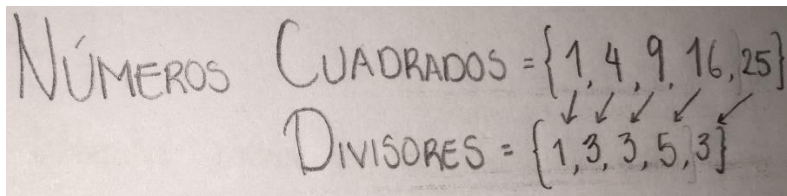 NÚMEROS CUADRADOS = {1, 4, 9, 16, 25}
DIVISORES = {1, 3, 3, 5, 3}